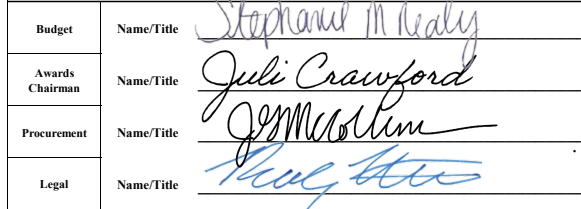 Budget Name/Title Stephanie M Realy
Awards Chairman Name/Title Juli Crawford
Procurement Name/Title
Legal Name/Title